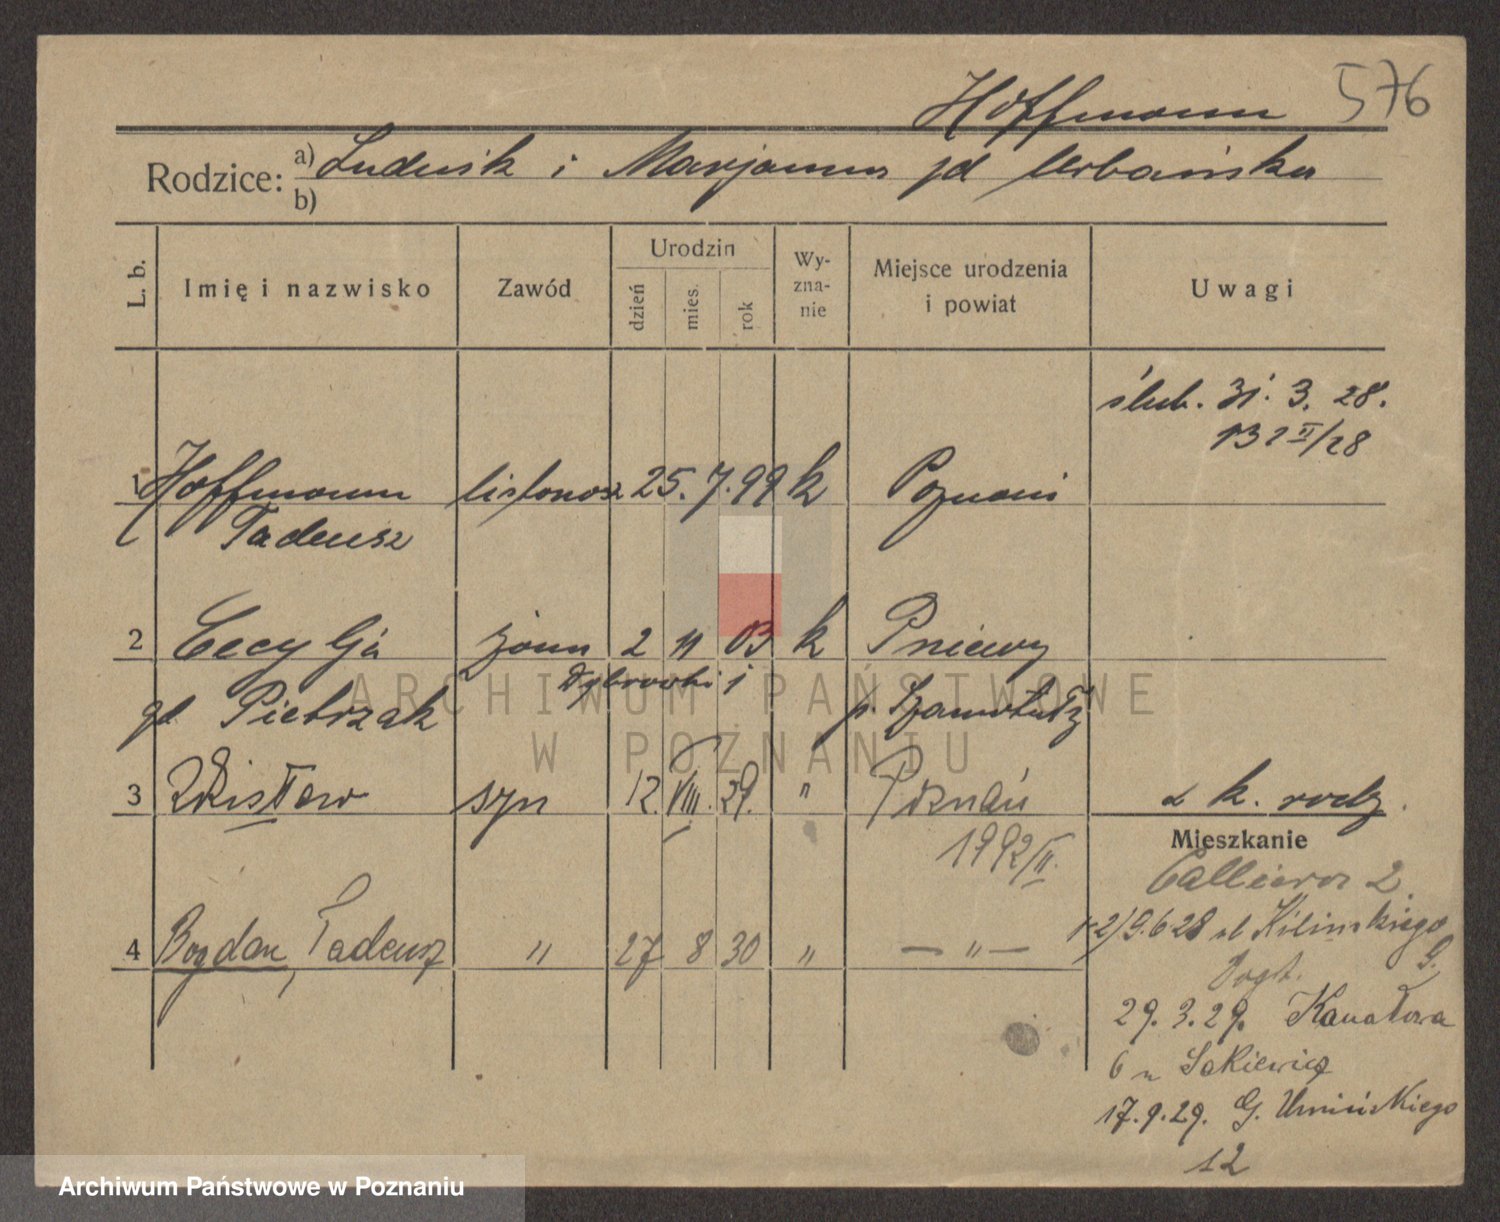 Hoffmann 576
Rodzice: a) Ludwik i Marjanna zd Urbańska
b)
L. b. Imię i nazwisko Zawód Urodzin dzień mies. rok Wy-zna-nie Miejsce urodzenia i powiat Uwagi
ślub. 31. 3. 28.
132 II/28
1 Hoffmann listonosz 25. 7. 99 k Poznań
Tadeusz
2 Cecylja żona 2 11 03 k Pniewy
Dąbrowski
gb. Pietrzak p. Szamotuły
3 Zdzisław syn 12. VIII. 29. " Poznań z k. rodz.
1992/II.
Mieszkanie
Calliera 2.
4 Bogdan, Tadeusz " 27 8 30 " — " —
9.6 28 Kilińskiego
29. 3. 29. Kanałowa
6 u
17. 9. 29. G. Umińskiego
12
ARCHIWUM PAŃSTWOWE
W POZNANIU
Archiwum Państwowe w Poznaniu